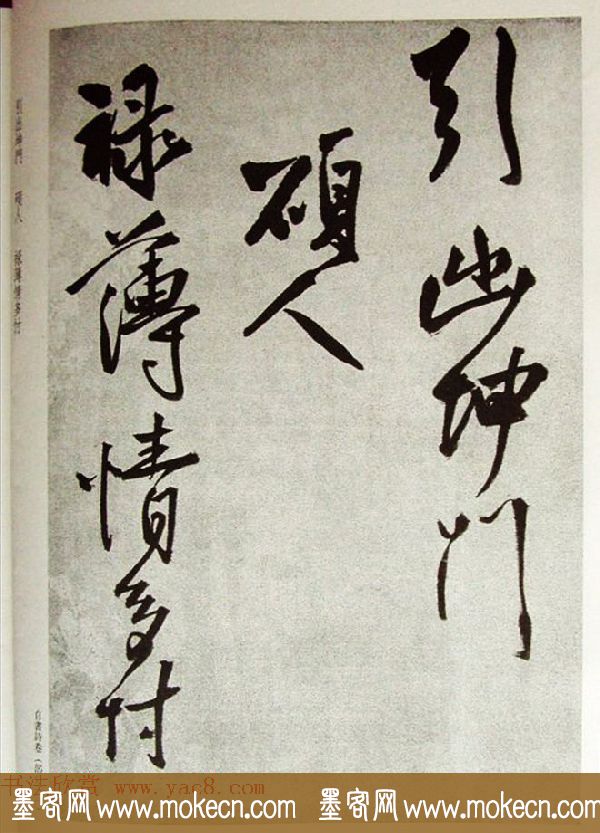 引出坤門
碩人
祿薄情多忖
引出坤門　碩人　祿薄情多忖
自書詩卷（部
书法欣赏 www.yac8.com
墨客网 www.mokecn.com 墨客网 www.mokecn.com